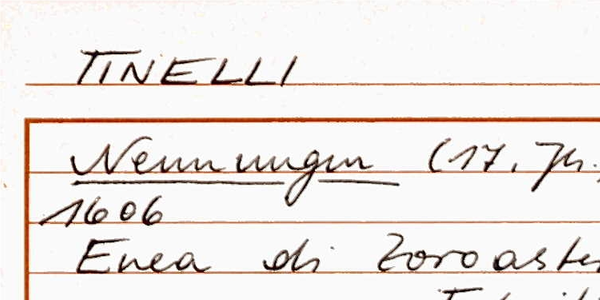 TINELLI
Nennungen (17. Jh.
1606
Enea di Zoroaster